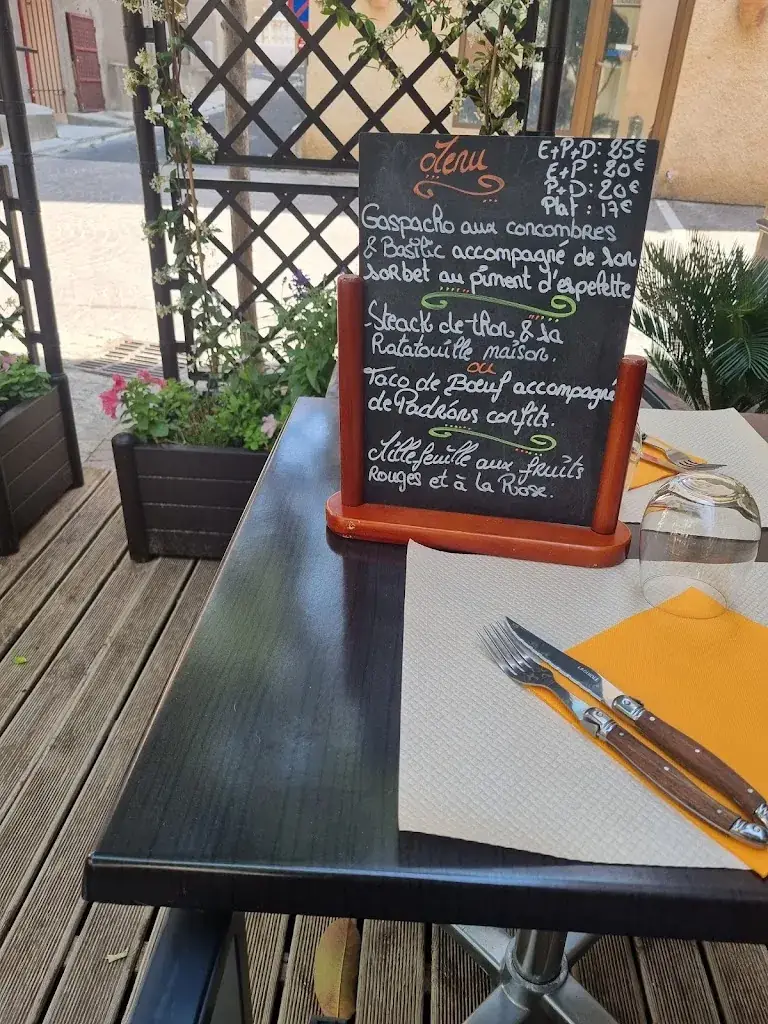 Menu
E+P+D: 25€
E+P : 20€
P+D: 20€
Plat : 17€
Gaspacho aux concombres
& Basilic accompagné de son
sorbet au piment d'espelette
Steack de thon & sa
Ratatouille maison.
ou
Taco de Bœuf accompagné
de Padrons confits.
Millefeuille aux fruits
Rouges et à la Rose.
LAGUIOLE